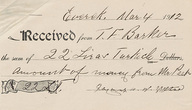 Everek Mar 4 1912
Received from T. F. Barker
the sum of 22 Liras Turkish Dollars
Amount of money from Mr. Peet